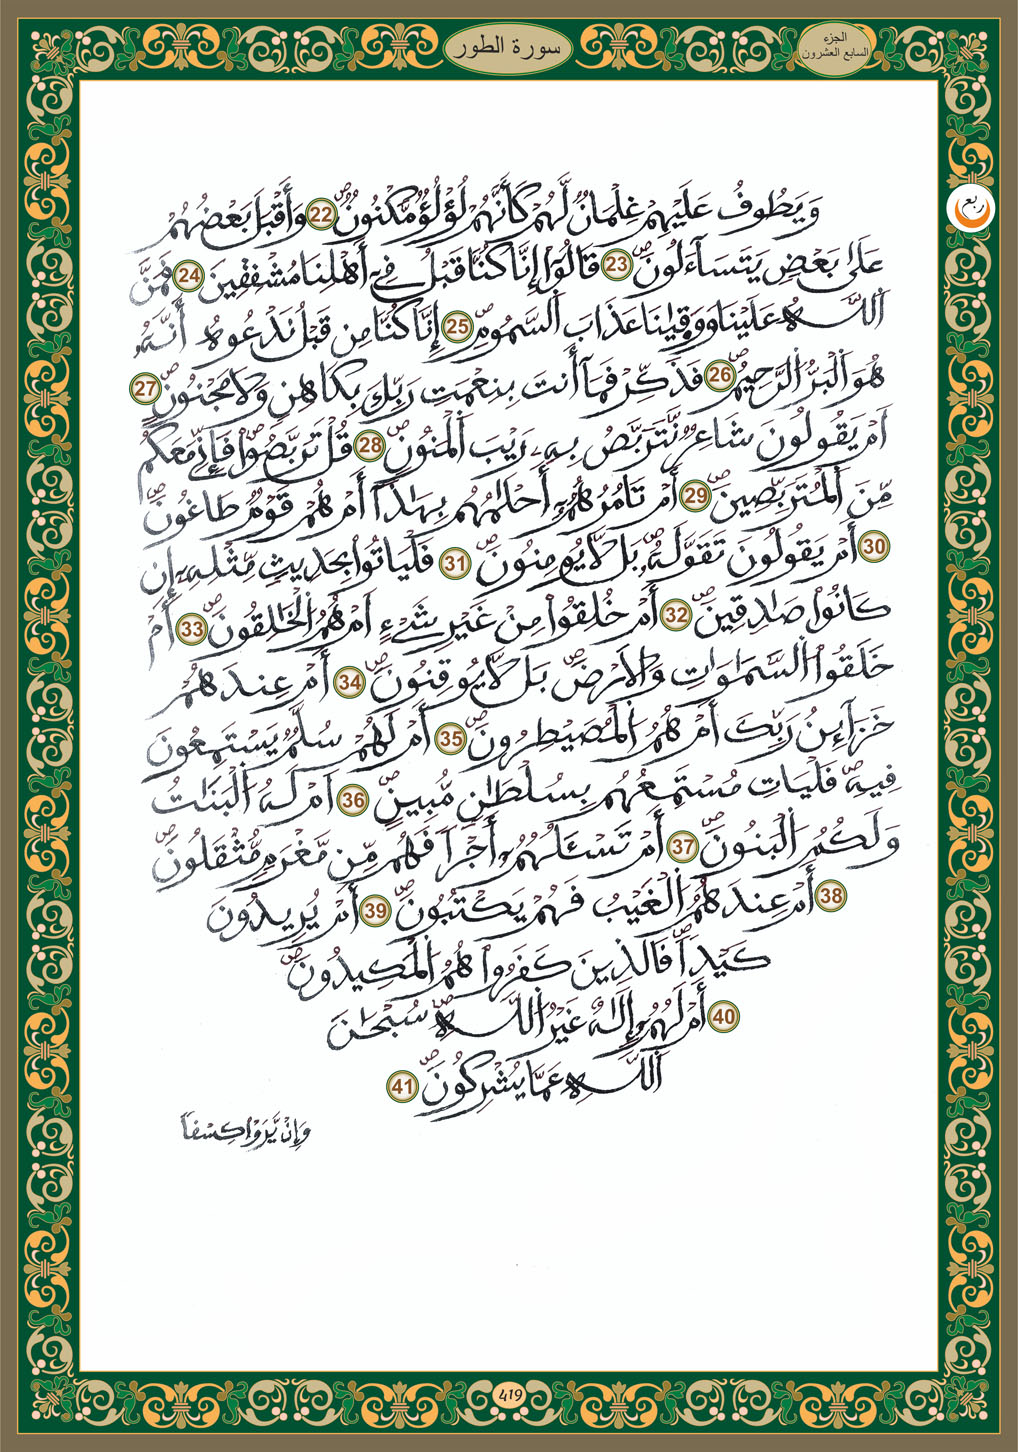 سورة الطور
الجزء
السابع العشرون
ربع
وَيَطُوفُ عَلَيْهِمْ غِلْمَانٌ لَّهُمْ كَأَنَّهُمْ لُؤْلُؤٌ مَّكْنُونٌ 22 وَأَقْبَلَ بَعْضُهُمْ
عَلَىٰ بَعْضٍ يَتَسَآءَلُونَ 23 قَالُوٓاْ إِنَّا كُنَّا قَبْلُ فِىٓ أَهْلِنَا مُشْفِقِينَ 24 فَمَنَّ
اَ۬للَّهُ عَلَيْنَا وَوَقَىٰنَا عَذَابَ اَ۬لسَّمُومِ 25 إِنَّا كُنَّا مِن قَبْلُ نَدْعُوهُ أَنَّهُۥ
هُوَ اَ۬لْبَرُّ اُ۬لرَّحِيمُ 26 فَذَكِّرْ فَمَآ أَنتَ بِنِعْمَتِ رَبِّكَ بِكَاهِنٍ وَلَا مَجْنُونٍ 27
أَمْ يَقُولُونَ شَاعِرٌ نَّتَرَبَّصُ بِهِۦ رَيْبَ اَ۬لْمَنُونِ 28 قُلْ تَرَبَّصُواْ فَإِنِّے مَعَكُم
مِّنَ اَ۬لْمُتَرَبِّصِينَ 29 أَمْ تَامُرُهُمُۥٓ أَحْلَٰمُهُم بِهَٰذَآ أَمْ هُمْ قَوْمٌ طَاغُونَ
30 أَمْ يَقُولُونَ تَقَوَّلَهُۥ بَل لَّا يُومِنُونَ 31 فَلْيَاتُواْ بِحَدِيثٍ مِّثْلِهِۦٓ إِن
كَانُواْ صَٰدِقِينَ 32 أَمْ خُلِقُواْ مِنْ غَيْرِ شَےْءٍ اَمْ هُمُ اُ۬لْخَٰلِقُونَ 33 أَمْ
خَلَقُواْ اُ۬لسَّمَٰوَٰتِ وَالَارْضَ بَل لَّا يُوقِنُونَ 34 أَمْ عِندَهُمْ
خَزَآئِنُ رَبِّكَ أَمْ هُمُ اُ۬لْمُصَيْطِرُونَ 35 أَمْ لَهُمْ سُلَّمٌ يَسْتَمِعُونَ
فِيهِ فَلْيَاتِ مُسْتَمِعُهُم بِسُلْطَٰنٍ مُّبِينٍ 36 اَمْ لَهُ اُ۬لْبَنَٰتُ
وَلَكُمُ اُ۬لْبَنُونَ 37 أَمْ تَسْـَٔلُهُمُۥٓ أَجْراً فَهُم مِّن مَّغْرَمٍ مُّثْقَلُونَ
38 أَمْ عِندَهُمُ اُ۬لْغَيْبُ فَهُمْ يَكْتُبُونَ 39 أَمْ يُرِيدُونَ
كَيْداً فَالذِينَ كَفَرُواْ هُمُ اُ۬لْمَكِيدُونَ
40 أَمْ لَهُمُۥٓ إِلَٰهٌ غَيْرُ اُ۬للَّهِ سُبْحَٰنَ
اَ۬للَّهِ عَمَّا يُشْرِكُونَ 41
وَإِنْ يَّرَوْاْ كِسْفاً
419